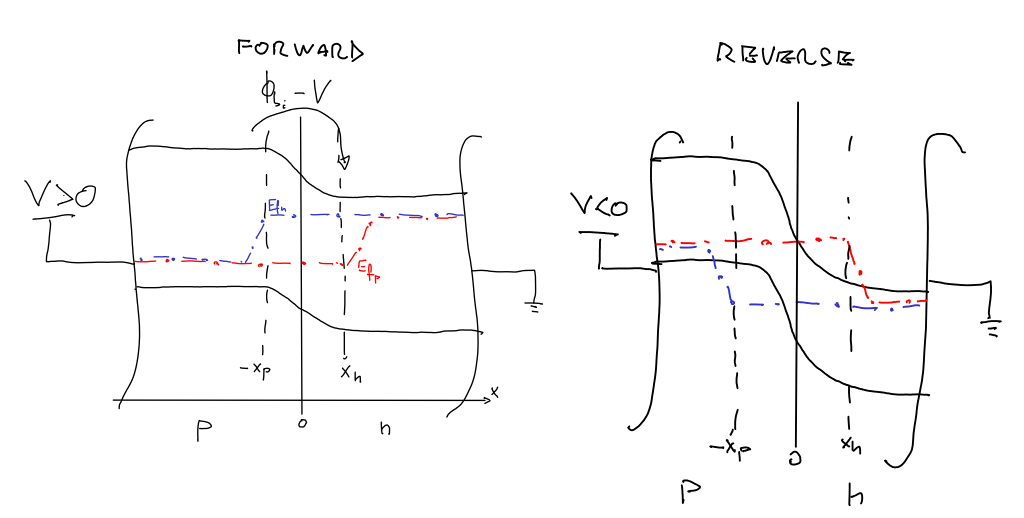 FORWARD
ϕi - V
V>0
Efn
Efp
-xp
xn
x
p
0
n
REVERSE
V<0
-xp
0
xn
p
n